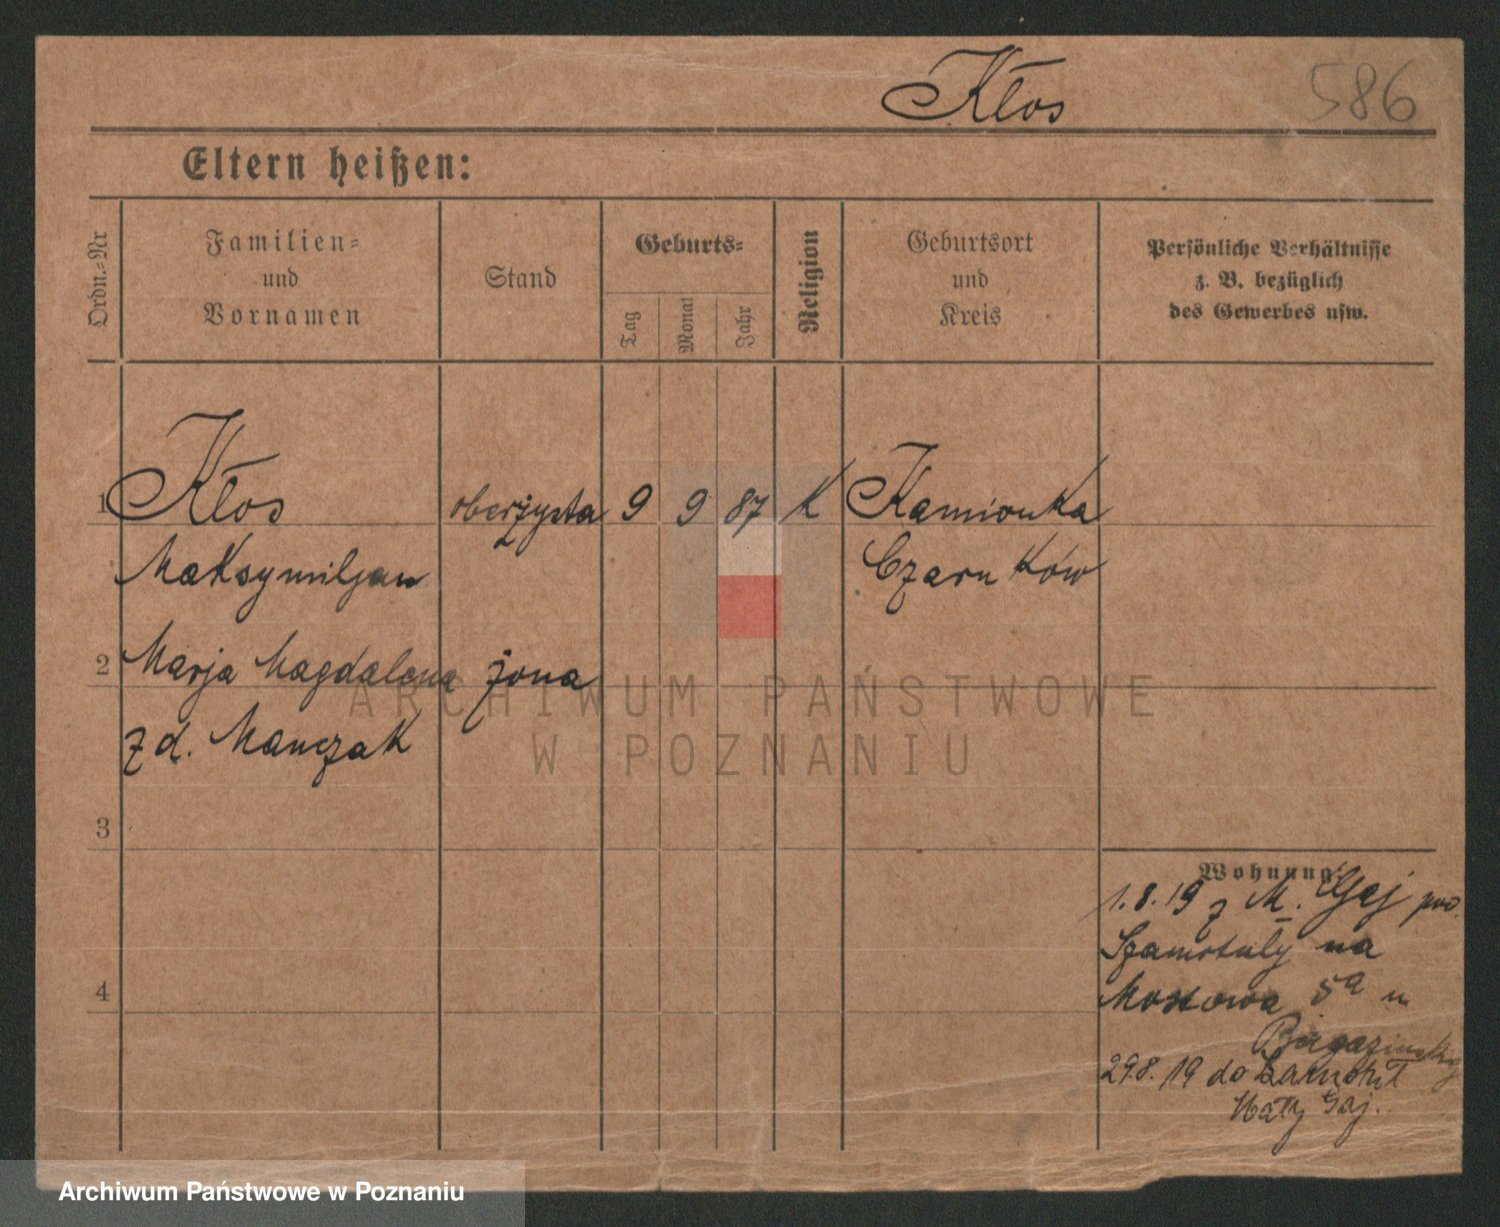 Kłos 586
Eltern heißen:
Ordn.-Nr
Familien- und Vornamen
Stand
Geburts-
Tag
Monat
Jahr
Religion
Geburtsort und Kreis
Persönliche Verhältnisse z. B. bezüglich des Gewerbes usw.
1 Kłos oberżysta 9 9 87 K Kamionka
Maksymiljan Czarnków
2 Marja Magdalena żona
z d. Manczak
3
4
Wohnung:
1.8.19 z M. Gaj pow.
Szamotuły na
Mostowa 5a u
29.8.19 do Szamotuł
Mały Gaj.
ARCHIWUM PAŃSTWOWE
W POZNANIU
Archiwum Państwowe w Poznaniu